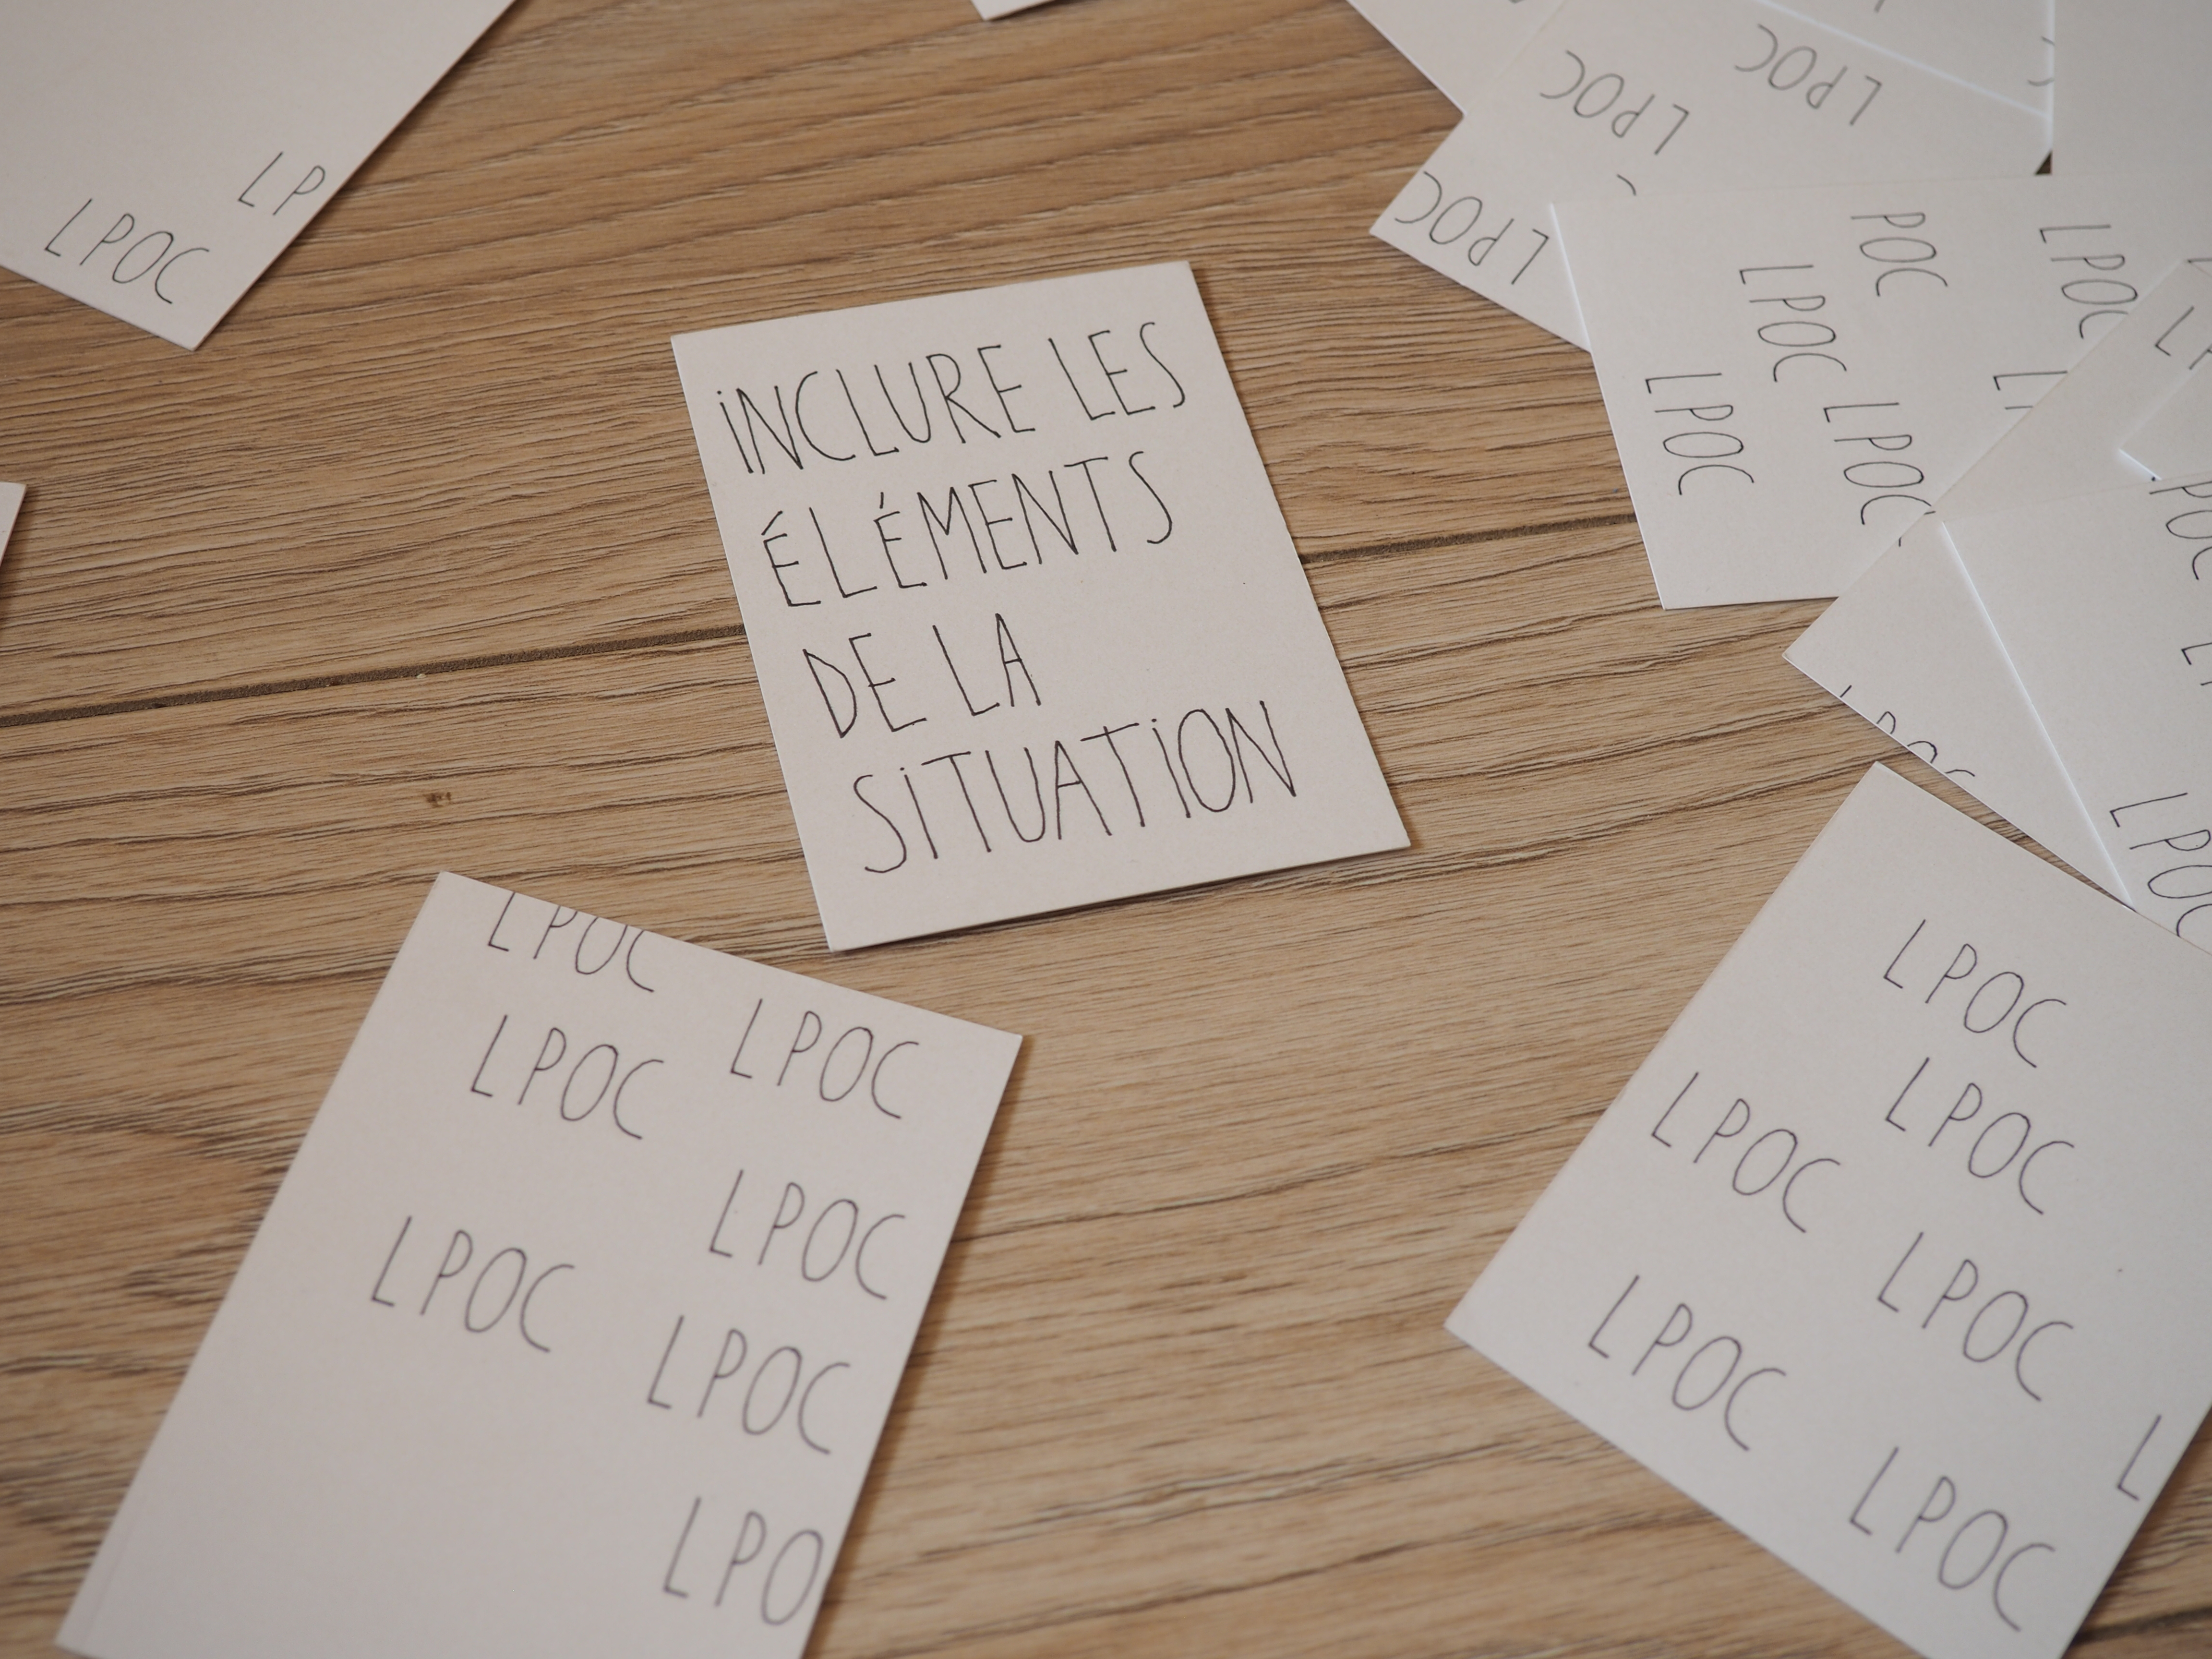 LP
LPOC
LPOC
LPOC
LPOC
POC
LPOC
LPOC
LPOC
LPOC
INCLURE LES
ÉLÉMENTS
DE LA
SITUATION
LPOC
LPOC
LPOC
LPOC
LPOC
LPOC
LPOC
LPO
LPOC
LPOC
LPOC
LPOC
LPOC
LPOC
L